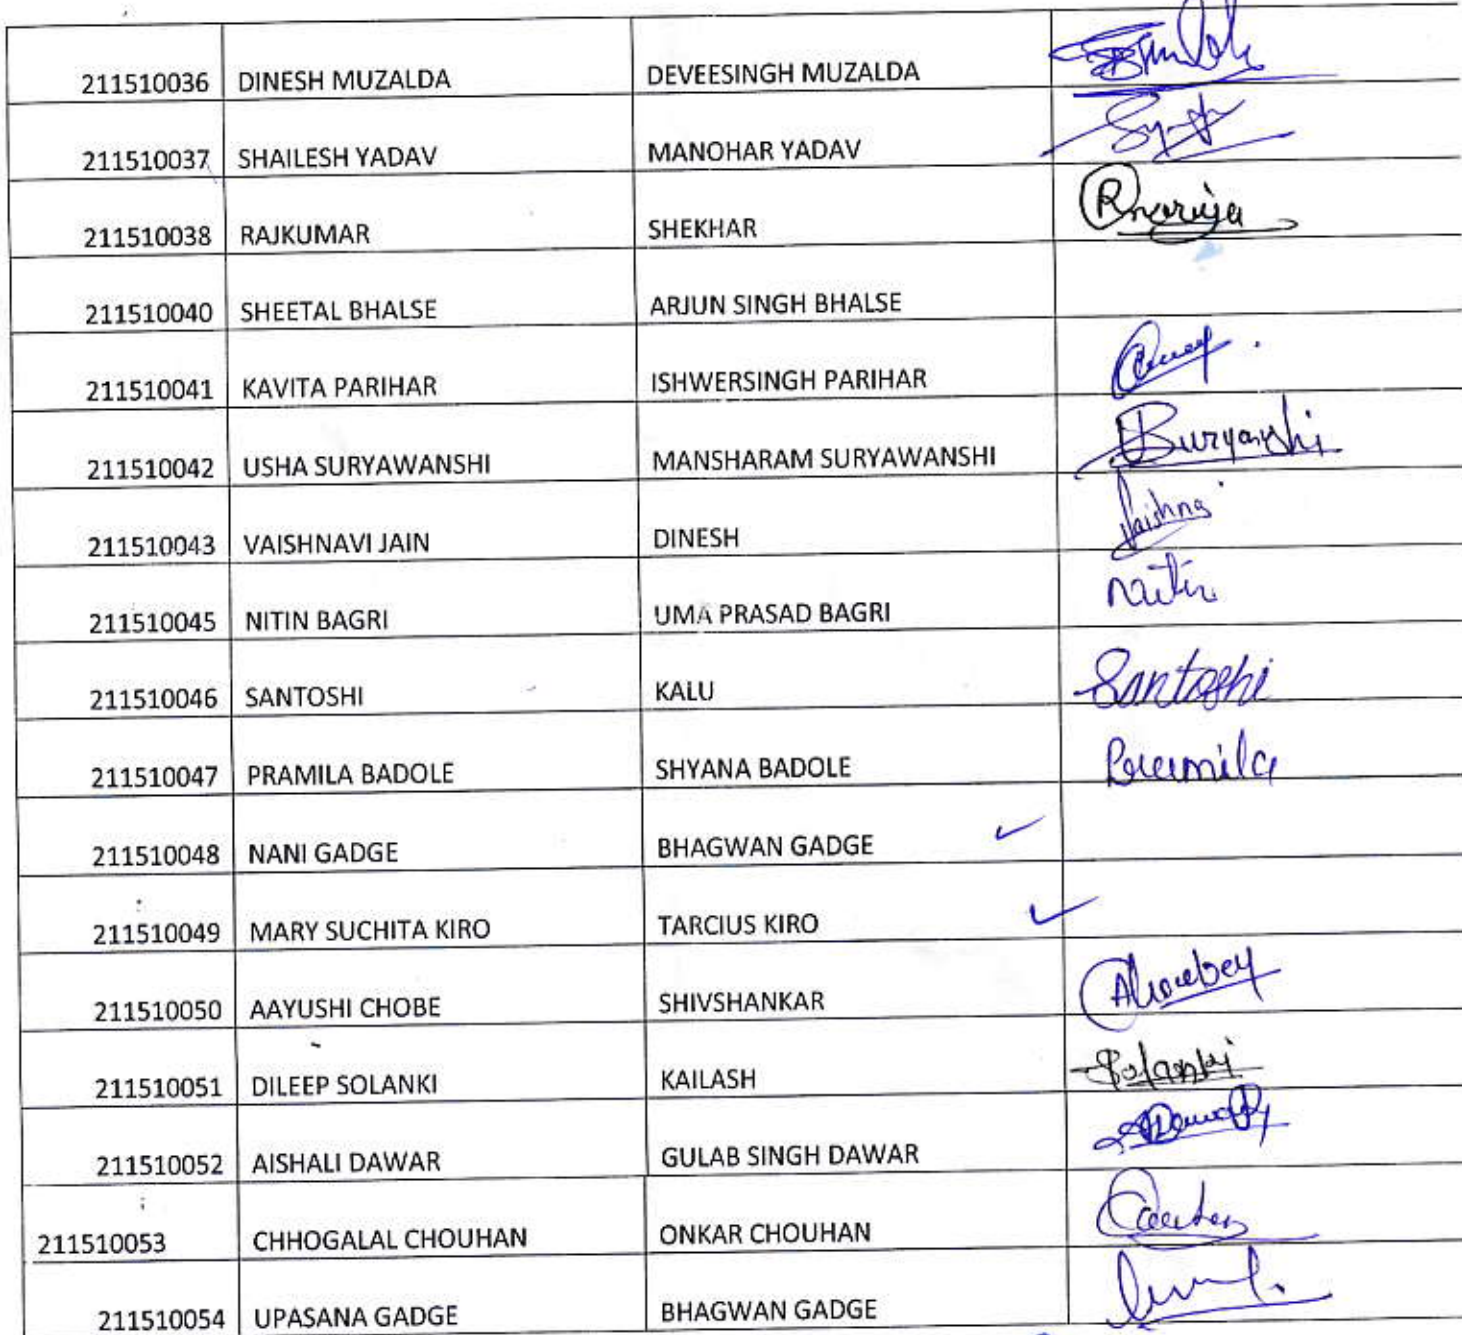 211510036 DINESH MUZALDA DEVEESINGH MUZALDA
211510037 SHAILESH YADAV MANOHAR YADAV
211510038 RAJKUMAR SHEKHAR
211510040 SHEETAL BHALSE ARJUN SINGH BHALSE
211510041 KAVITA PARIHAR ISHWERSINGH PARIHAR
211510042 USHA SURYAWANSHI MANSHARAM SURYAWANSHI Suryanshi
211510043 VAISHNAVI JAIN DINESH
211510045 NITIN BAGRI UMA PRASAD BAGRI Nitin
211510046 SANTOSHI KALU Santoshi
211510047 PRAMILA BADOLE SHYANA BADOLE Pramila
211510048 NANI GADGE BHAGWAN GADGE ✓
211510049 MARY SUCHITA KIRO TARCIUS KIRO ✓
211510050 AAYUSHI CHOBE SHIVSHANKAR AChoubey
211510051 DILEEP SOLANKI KAILASH Solanki
211510052 AISHALI DAWAR GULAB SINGH DAWAR
211510053 CHHOGALAL CHOUHAN ONKAR CHOUHAN
211510054 UPASANA GADGE BHAGWAN GADGE